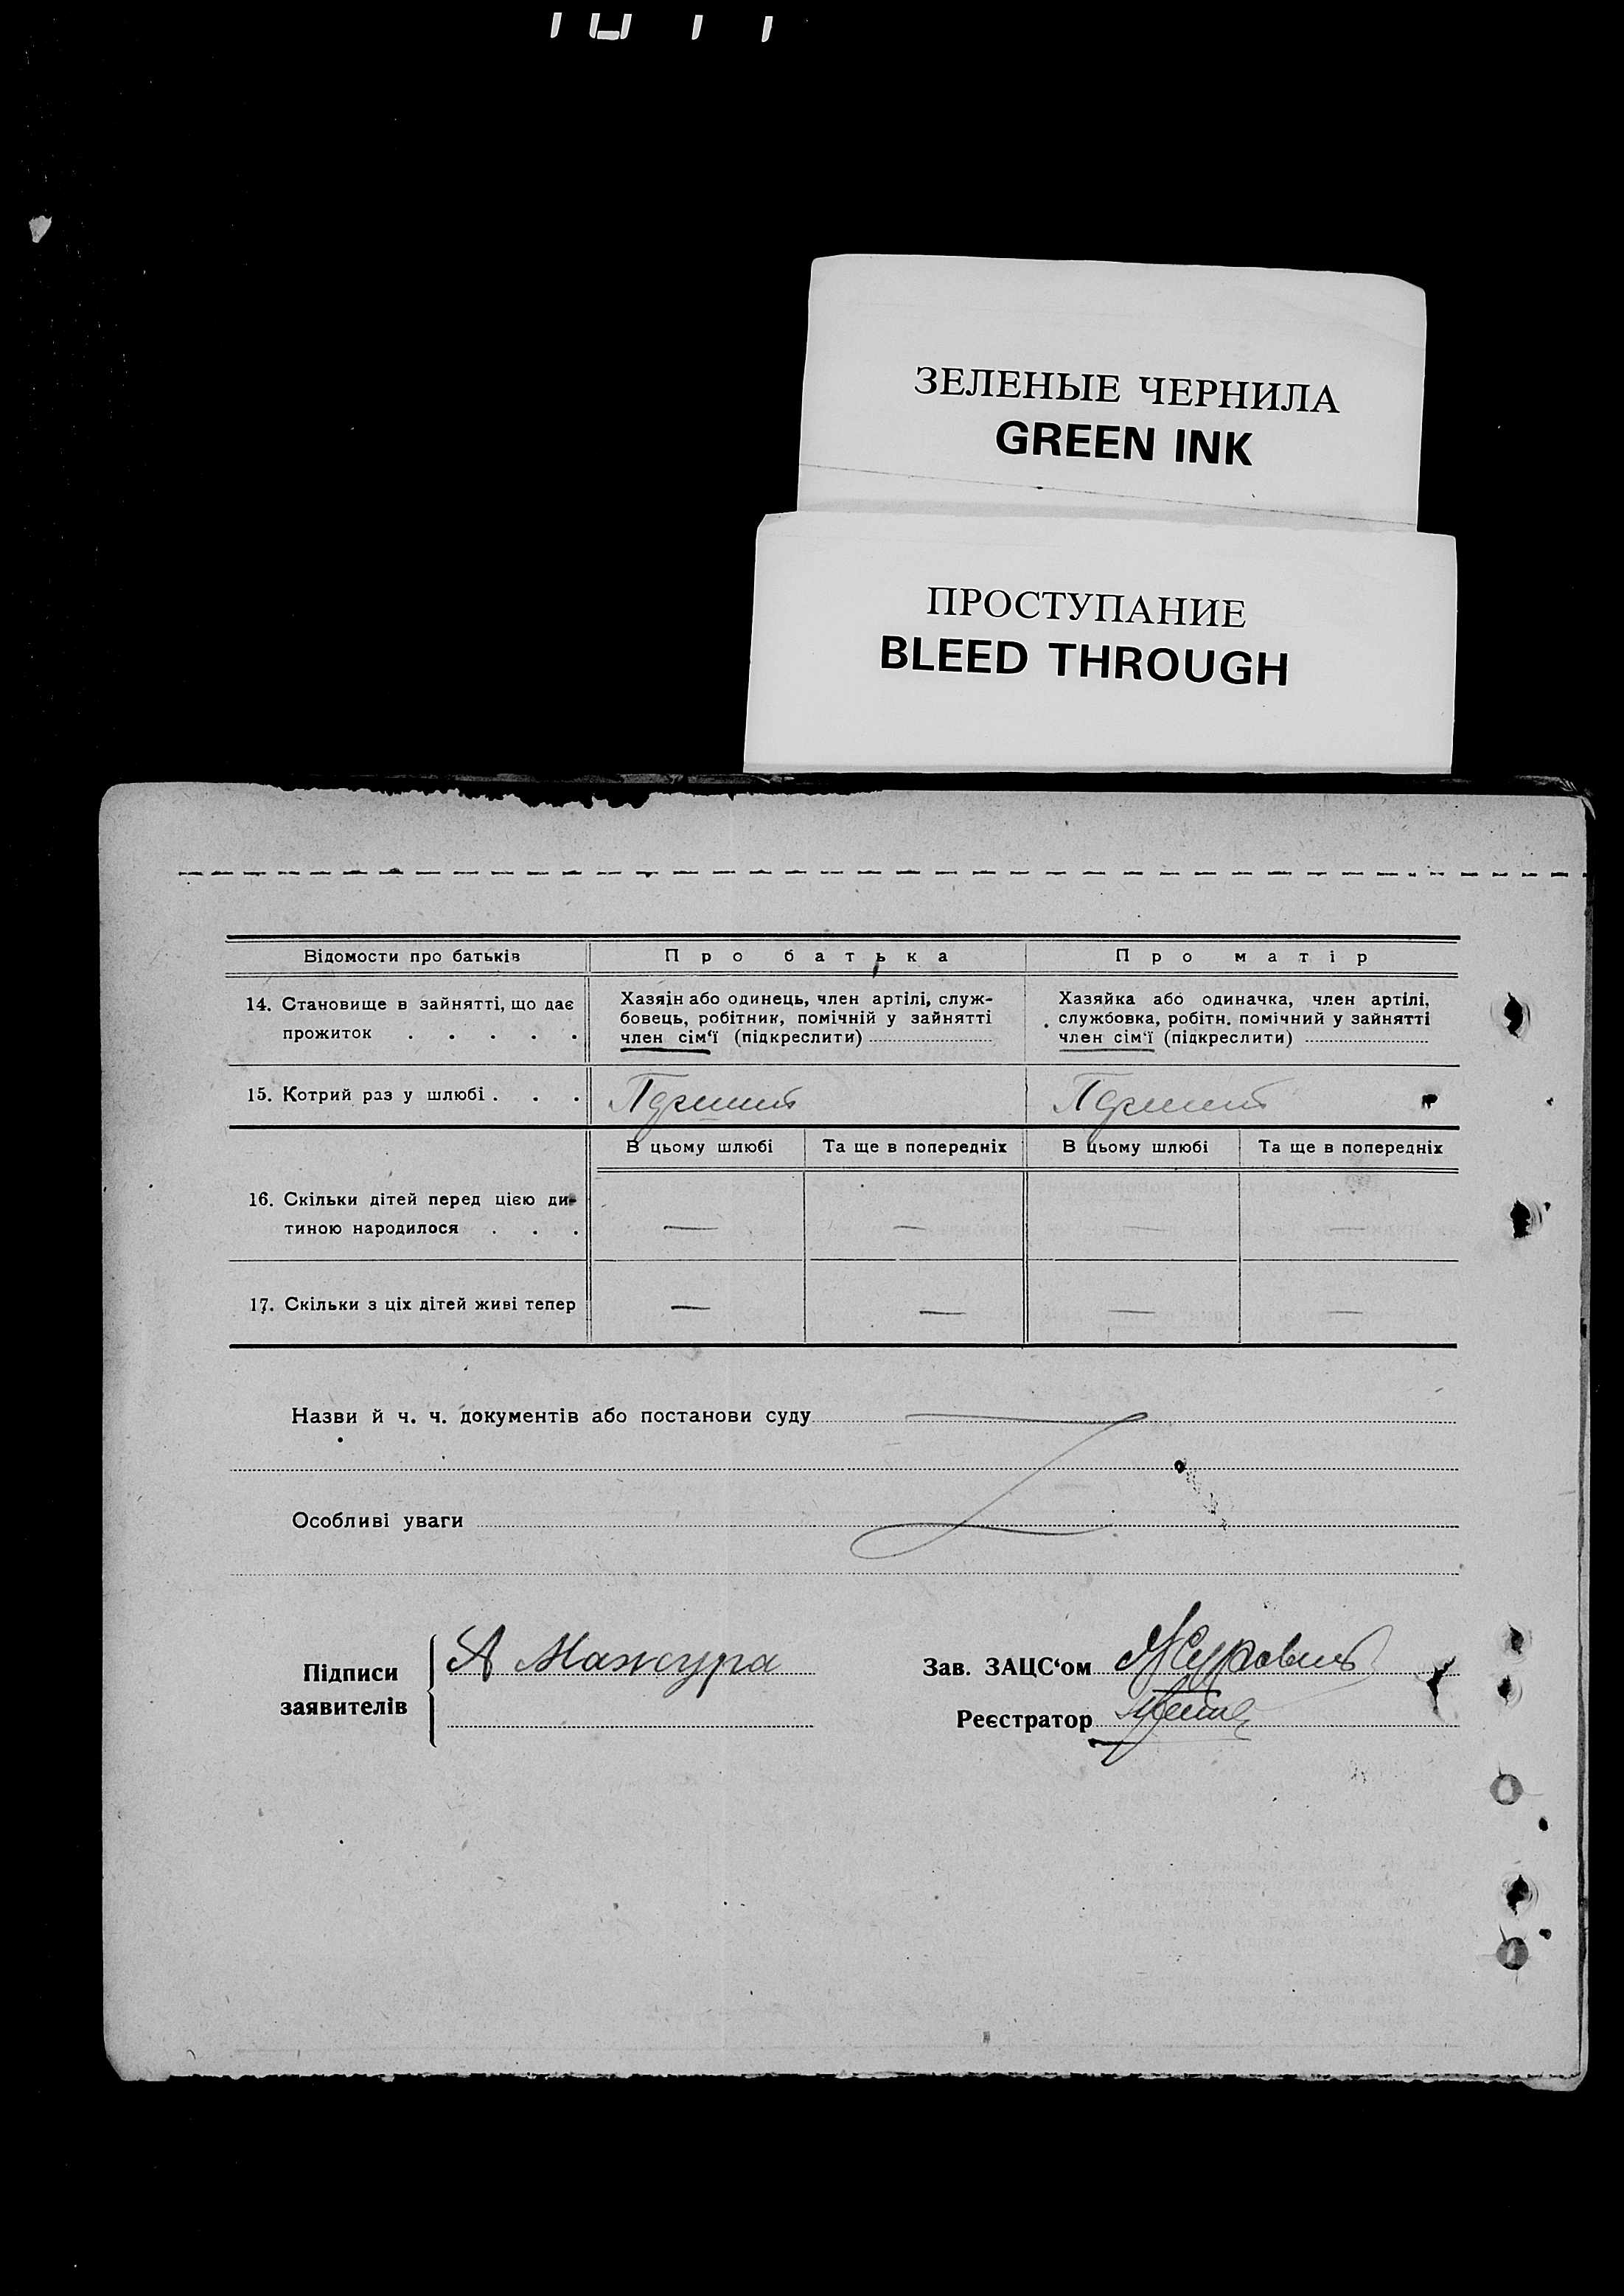 ЗЕЛЕНЫЕ ЧЕРНИЛА
GREEN INK
ПРОСТУПАНИЕ
BLEED THROUGH
Відомости про батьків Про батька Про матір
14. Становище в зайнятті, що дає прожиток . . . . .
Хазяїн або одинець, член артілі, служ-
бовець, робітник, помічній у зайнятті
член сім‘ї (підкреслити)
Хазяйка або одиначка, член артілі,
службовка, робітн. помічний у зайнятті
член сім‘ї (підкреслити)
15. Котрий раз у шлюбі . . .
В цьому шлюбі Та ще в попередніх В цьому шлюбі Та ще в попередніх
16. Скільки дітей перед цією ди-
тиною народилося . . . — — — —
17. Скільки з ціх дітей живі тепер — — — —
Назви й ч. ч. документів або постанови суду
Особливі уваги
Підписи
заявителів
А Мажура
Зав. ЗАЦС‘ом
Реєстратор